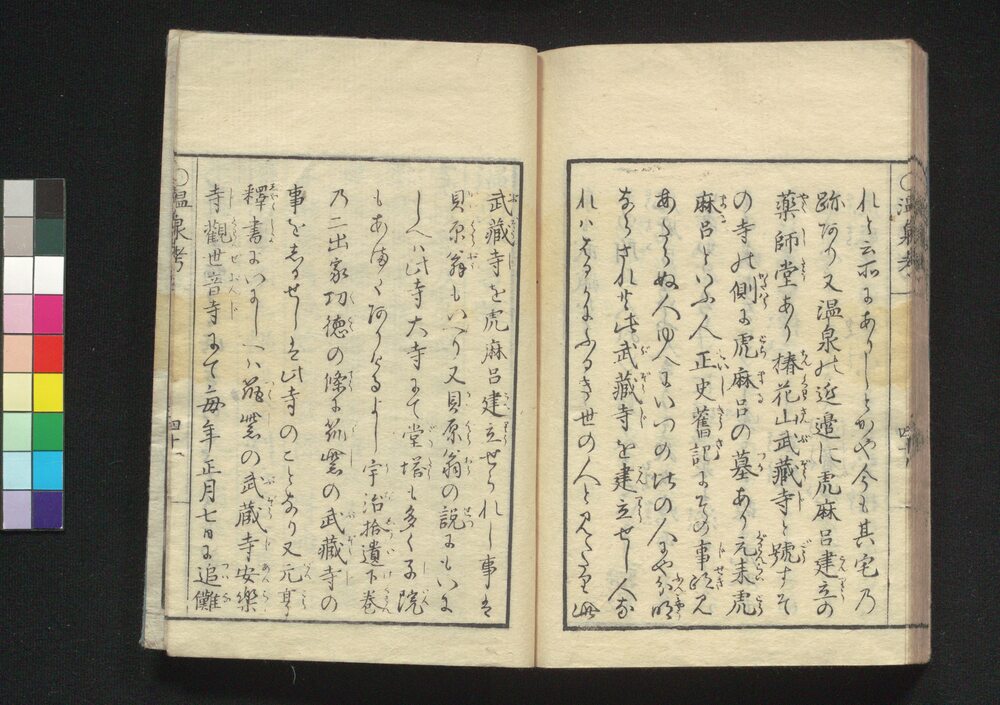 れと云所にありしとかや今も其宅乃
跡あり又温泉の近邉に虎麻呂建立の
薬師堂あり椿花山武藏寺と號すそ
の寺の側に虎麻呂の墓あり元来虎
麻呂といふ人正史舊記にその事跡見
あたらぬ人ゆへにいつの比の人にや分明
ならされ共此武藏寺を建立せし人な
れハはるかにふるき世の人と見えたり此
武藏寺を虎麻呂建立せられし事は
貝原翁もいへり又貝原翁の説にもいに
しへハ此寺大寺にて堂塔も多く子院
もあまたありたるよし宇治拾遺下巻
乃二出家功徳の條に筑紫の武藏寺の
事をしるせしは此寺のことなり又元亨
釋書にいにしへハ筑紫の武蔵寺安樂
寺觀世音寺にて毎年正月七日に追儺
○温泉考
四十一
○温泉考